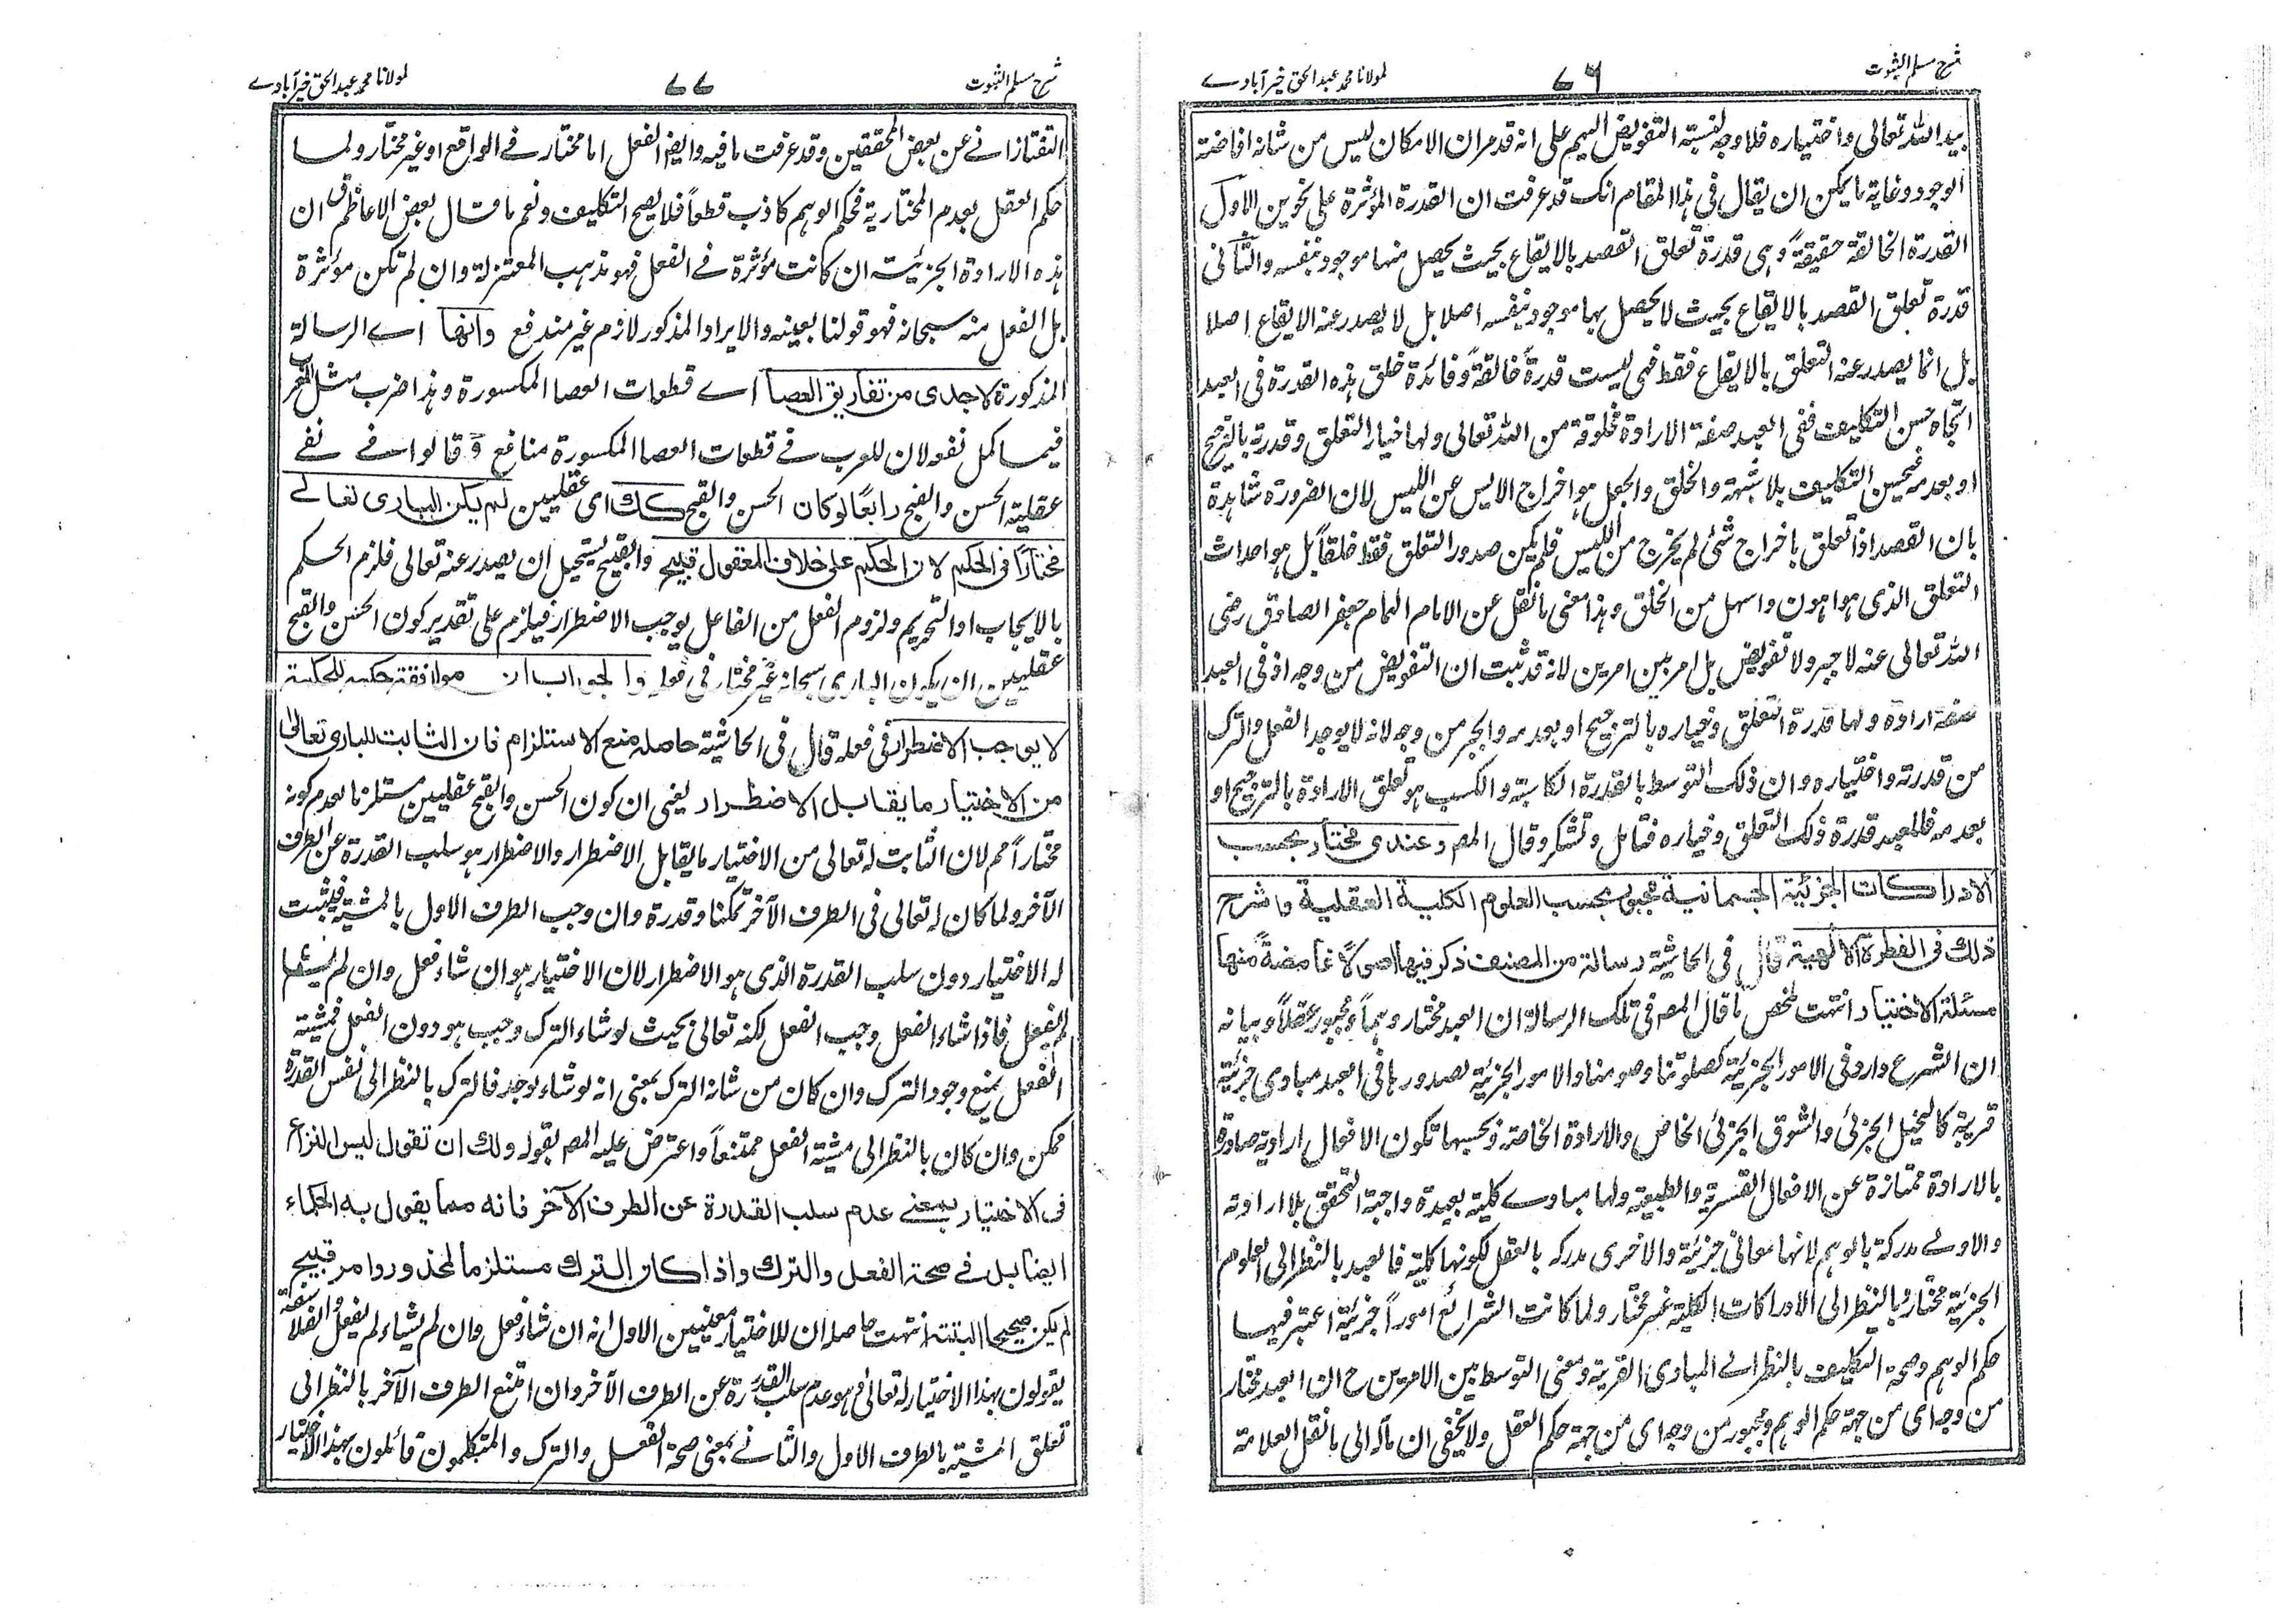 شرح مسلم الثبوت
٧٦
لمولانا محمد عبد الحق خيرآبادے
بيد الله تعالى واختياره فلا وجه لنسبته التفويض اليهم على انه قد مر ان الامكان ليس من شانه افاضته
الوجود وغاية ما يمكن ان يقال فى هذا المقام انك قد عرفت ان القدرة المؤثرة على نحوين الاول
القدرة الخالقة حقيقةً وهى قدرة تعلق القصد بالايقاع بحيث يحصل منها موجود بنفسه والثانى
قدرة تعلق القصد بالايقاع بحيث لا يحصل بها موجود بنفسه اصلا بل لا يصدر عنه الايقاع اصلا
بل انما يصدر عنه التعلق بالايقاع فقط فهى ليست قدرةً خالقةً وفائدة خلق هذه القدرة فى العبد
اتجاه حسن التكليف ففى العبد صفة الارادة مخلوقة من الله تعالى ولها خيار التعلق وقدرته بالترجيح
او بعدمه فيحسن التكليف بلا شبهة والخلق والجعل هو اخراج الايس عن الليس لان الضرورة شاهدة
بان القصد اذا تعلق باخراج شئ لم يخرج من الليس فلم يكن صدور التعلق فقط خلقاً بل هو احداث
التعلق الذى هو اهون واسهل من الخلق وهذا معنى ما نقل عن الامام الهمام جعفر الصادق رضى
الله تعالى عنه لا جبر ولا تفويض بل امر بين امرين لانه قد ثبت ان التفويض من وجه اذ فى العبد
صفة ارادة ولها قدرة التعلق وخياره بالترجيح او بعدمه والجبر من وجه لانه لا يوجد الفعل والترك
من قدرته واختياره وان ذلك التوسط بالقدرة الكاسبة والكسب هو تعلق الارادة بالترجيح او
بعدمه فللعبد قدرة ذلك التعلق وخياره فتامل وتشكر وقال المصـ وعندى مختار بحسب
الادراكات الجزئية الجسمانية مجبور بحسب العلوم الكلية العقلية وشرح
ذلك فى الفطرة الالهية قال فى الحاشية رسالة من المصنف ذكر فيها اصولاً غامضةً منها
مسئلة الاختيار انتهت ملخص ما قال المصـ فى تلك الرسالة ان العبد مختار وهماً ومجبور عقلاً وبيانه
ان الشرع وارد فى الامور الجزئية كصلوتنا وصومنا والامور الجزئية لصدورها فى العبد مبادى جزئية
قريبة كالتخيل الجزئى والشوق الجزئى الخاص والارادة الخاصة وبحسبها تكون الافعال ارادية صادرة
بالارادة ممتازة عن الافعال القسرية والطبعية ولها مبادے كلية بعيدة واجبة التحقق بلا ارادته
والاولے مدركة بالوهم لانها معانى جزئية والاخرى مدركه بالعقل لكونها كلية فالعبد بالنظر الى العلوم
الجزئية مختار وبالنظر الى الادراكات الكلية غير مختار ولما كانت الشرائع اموراً جزئية اعتبر فيها
حكم الوهم وصحة التكليف بالنظر الے المبادى القريبة ومعنى التوسط بين الامرين ح ان العبد مختار
من وجه اى من جهة حكم الوهم ومجبور من وجه اى من جهة حكم العقل ولا يخفى ان مآله الى ما نقل العلامة
شرح مسلم الثبوت
٧٧
لمولانا محمد عبد الحق خيرآبادے
التفتازانے عن بعض المحققين وقد عرفت ما فيه وايضا الفعل اما مختار فے الواقع او غير مختار ولما
حكم العقل بعدم المختارية فحكم الوهم كاذب قطعاً فلا يصح التكليف ونعم ما قال بعض الاعاظم ان
هذه الارادة الجزئية ان كانت مؤثرة فے الفعل فهو مذهب المعتزلة وان لم تكن مؤثرة
بل الفعل منه سبحانه فهو قولنا بعينه والايراد المذكور لازم غير مندفع وانها اے الرسالة
المذكورة لاجدى من تفاريق العصا اے قطعات العصا المكسورة وهذا ضرب مثل للعرب
فيما كمل نفعه لان للعرب فے قطعات العصا المكسورة منافع وقالوا فے نفے
عقلية الحسن والقبح رابعاً لو كان الحسن والقبح كك اى عقليين لم يكن البارى تعالے
مختاراً فى الحكم لان الحكم على خلاف المعقول قبيح والقبيح يستحيل ان يصدر عنه تعالى فلزم الحكم
بالايجاب او التحريم ولزوم الفعل من الفاعل يوجب الاضطرار فيلزم على تقدير كون الحسن والقبح
عقليين ان يكون البارى سبحانه غير مختار فى فعله والجواب ان موافقة حكمه للحكمة
لا يوجب الاضطرار فى فعله قال فى الحاشية حاصله منع الاستلزام فان الثابت للبارى تعالى
من الاختيار ما يقابل الاضطرار يعنى ان كون الحسن والقبح عقليين مستلزما لعدم كونه
مختاراً مم لان الثابت له تعالى من الاختيار ما يقابل الاضطرار والاضطرار هو سلب القدرة عن الطرف
الآخر ولما كان له تعالى فى الطرف الآخر تمكنا وقدرة وان وجب الطرف الاول بالمشية فيثبت
له الاختيار دون سلب القدرة الذى هو الاضطرار لان الاختيار هو ان شاء فعل وان لم يشأ
لم يفعل فاذا شاء الفعل وجب الفعل لكنه تعالى بحيث لو شاء الترك وجب هو دون الفعل فمشية
الفعل يمنع وجود الترك وان كان من شانه الترك بمعنى انه لو شاء لوجد فالترك بالنظر الى نفس القدرة
ممكن وان كان بالنظر الى مشية الفعل ممتنعاً واعترض عليه المصـ بقوله ولك ان تقول ليس النزاع
فى الاختيار بمعنے عدم سلب القدرة عن الطرف الآخر فانه مما يقول به الحكماء
ايضا بل فے صحة الفعل والترك واذا كان الترك مستلزما لمحذور وامر قبيح
لم يكن صحيحا البتة انتهت حاصله ان للاختيار معنيين الاول انه ان شاء فعل وان لم يشاء لم يفعل والفلاسفة
يقولون بهذا الاختيار له تعالى هو عدم سلب القدرة عن الطرف الآخر وان امتنع الطرف الآخر بالنظر الى
تعلق المشية بالطرف الاول والثانے بمعنى صحة الفعل والترك والمتكلمون قائلون بهذا الاختيار